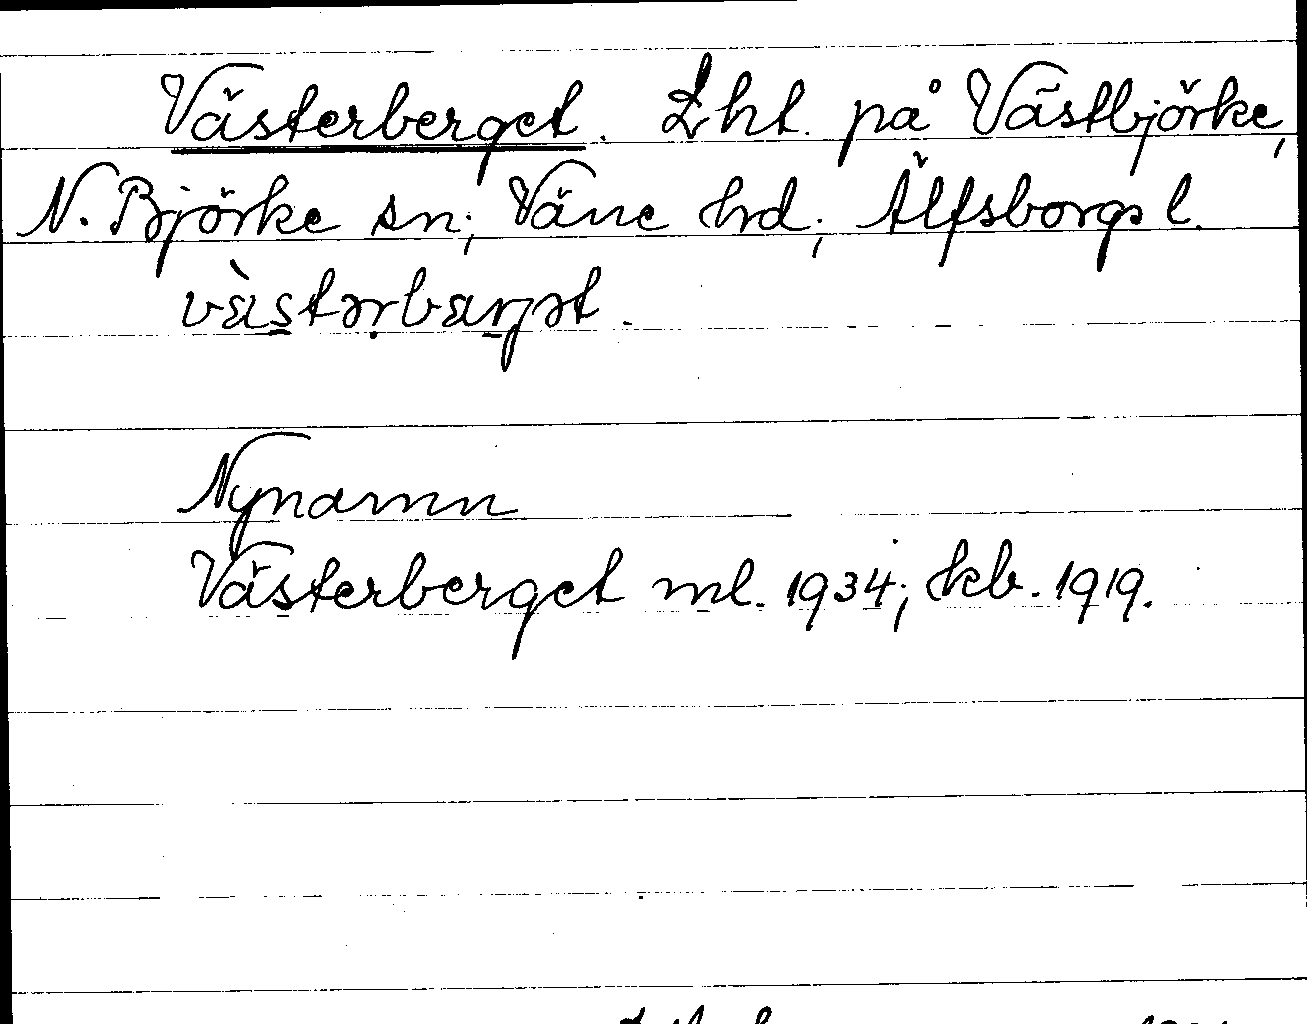 Västerberget. Lht. på Västbjörke,
N. Björke sn; Väne hd; Älfsborgs l.
vàstərbarjət.
Nynamn
Västerberget ml. 1934; kb. 1919.